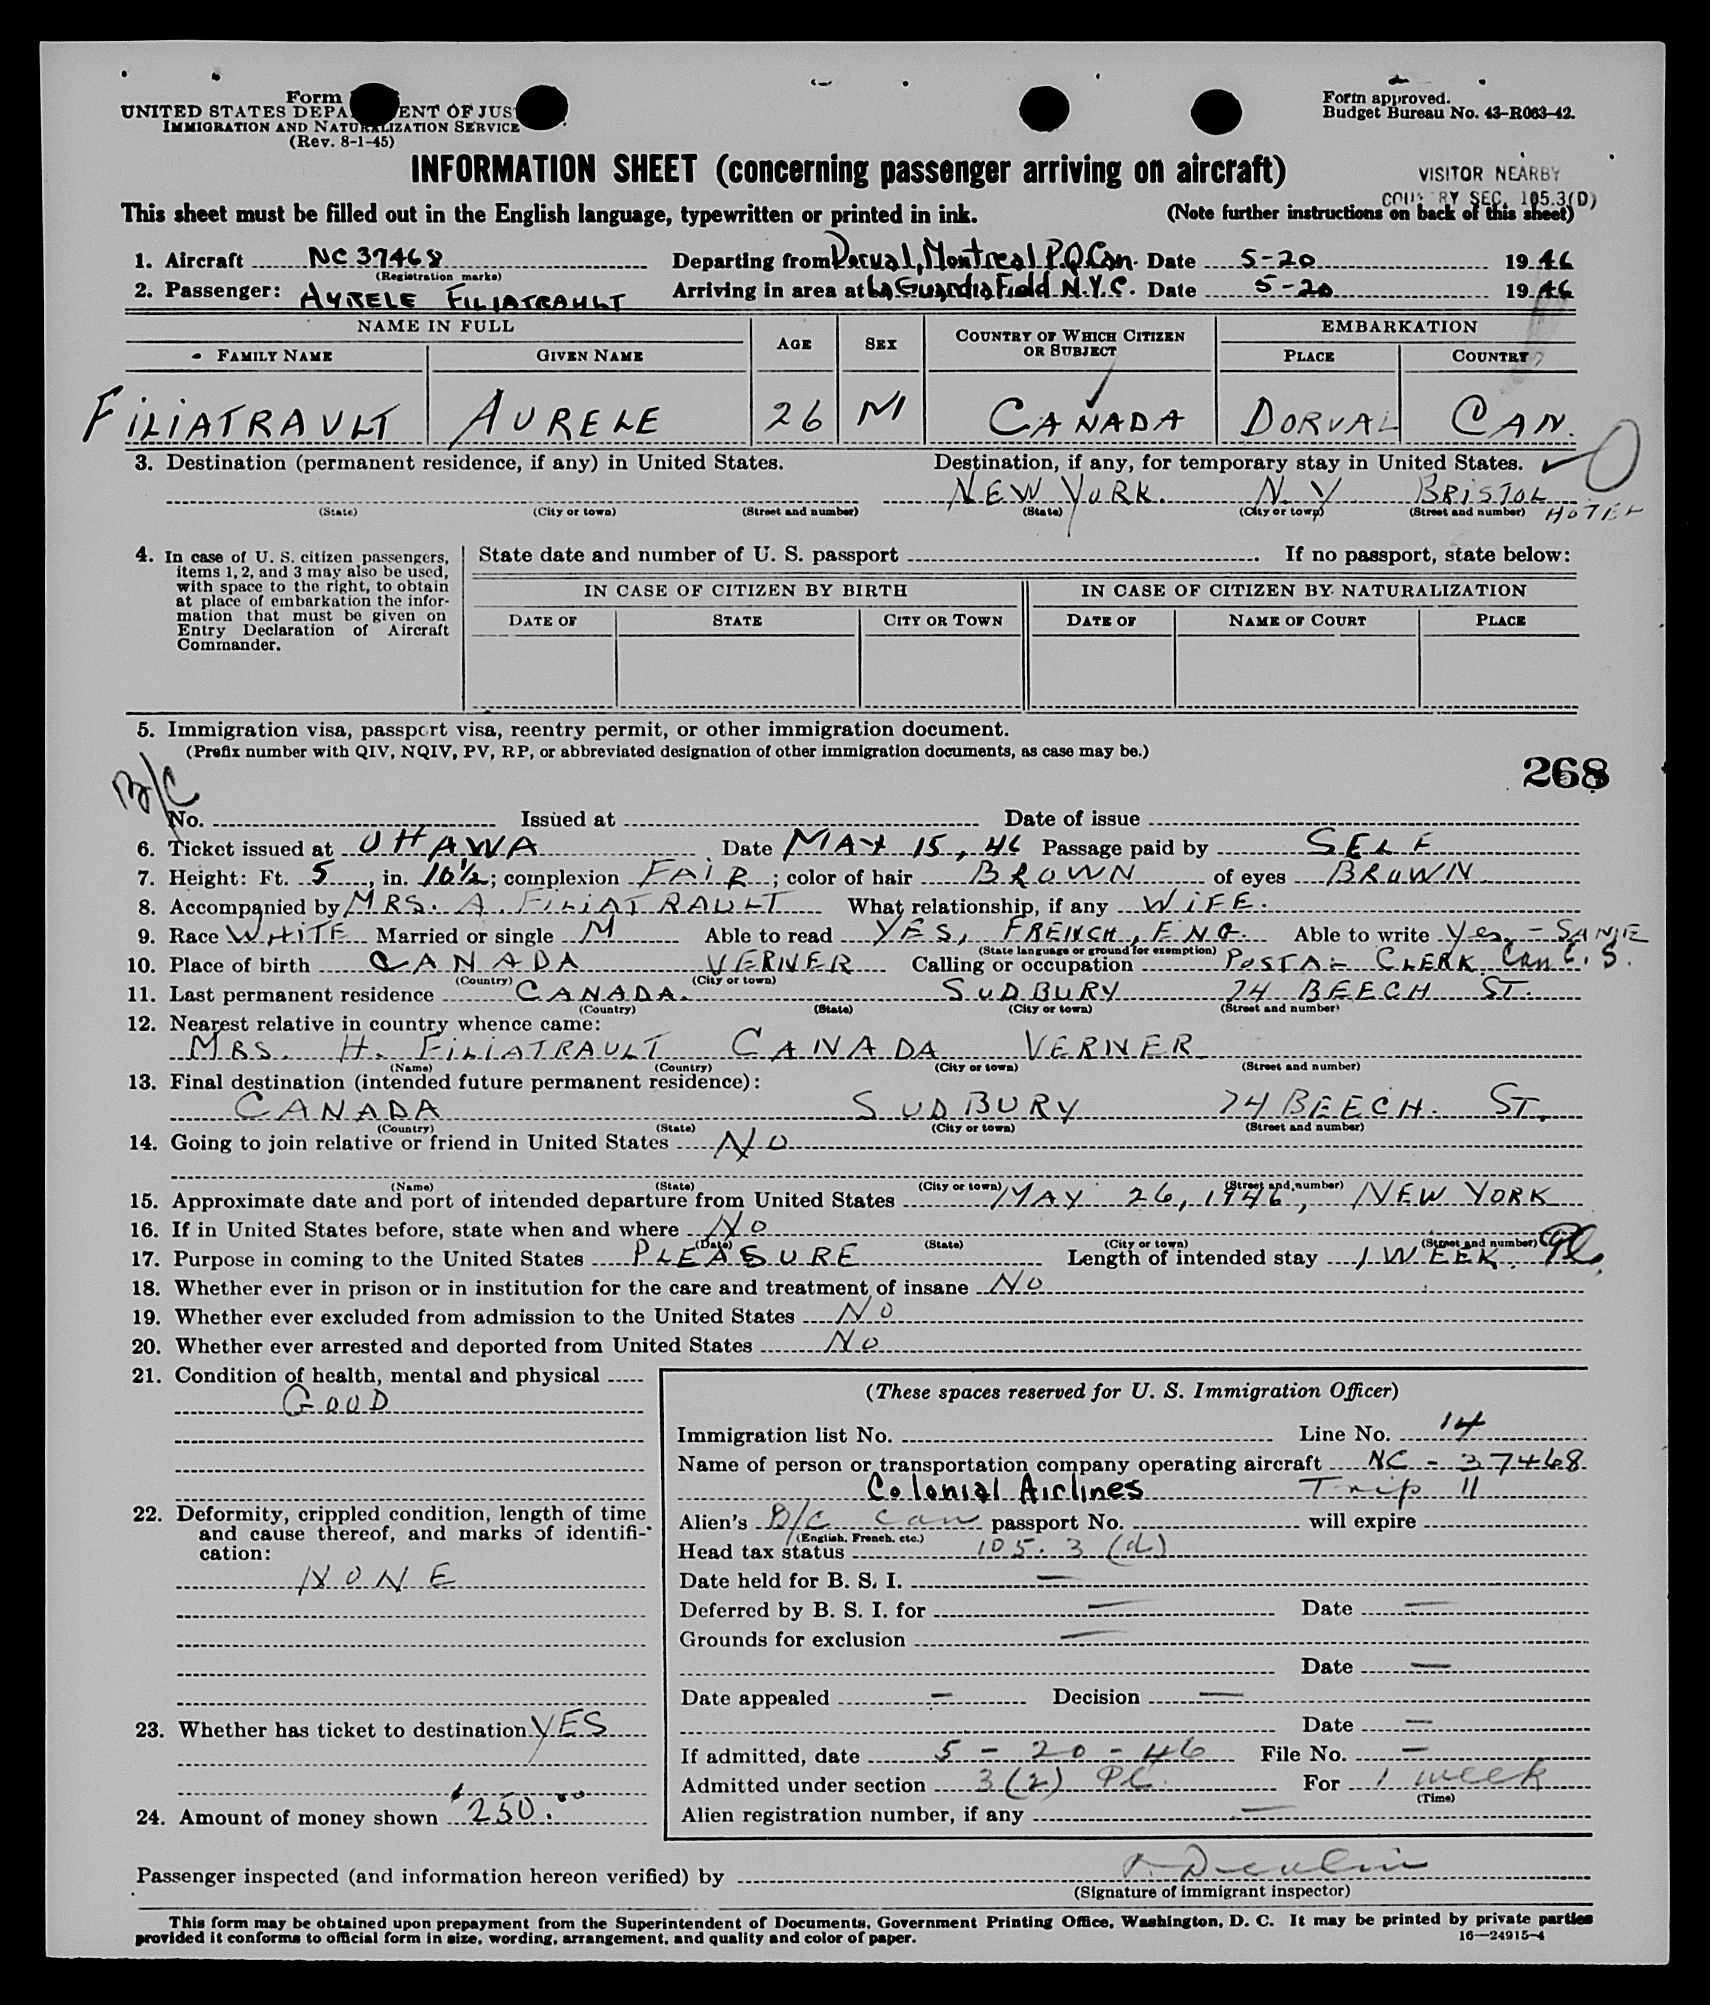 Form
UNITED STATES DEPA ENT OF JUS
IMMIGRATION AND NATURALIZATION SERVICE
(Rev. 8-1-45)
Form approved.
Budget Bureau No. 43-R063-42.
INFORMATION SHEET (concerning passenger arriving on aircraft)
VISITOR NEARBY
COUNTRY SEC. 105.3(D)
This sheet must be filled out in the English language, typewritten or printed in ink. (Note further instructions on back of this sheet)
1. Aircraft NC 37468 Departing from Dorval, Montreal P.Q. Can. Date 5-20 1946
(Registration marks)
2. Passenger: AURELE FILIATRAULT Arriving in area at La Guardia Field N.Y.C. Date 5-20 1946
NAME IN FULL AGE SEX COUNTRY OF WHICH CITIZEN OR SUBJECT EMBARKATION
FAMILY NAME GIVEN NAME PLACE COUNTRY
FILIATRAULT AURELE 26 M CANADA DORVAL CAN.
3. Destination (permanent residence, if any) in United States. Destination, if any, for temporary stay in United States.
NEW YORK. N Y BRISTOL HOTEL
(State) (City or town) (Street and number) (State) (City or town) (Street and number)
4. In case of U. S. citizen passengers, items 1, 2, and 3 may also be used, with space to the right, to obtain at place of embarkation the information that must be given on Entry Declaration of Aircraft Commander.
State date and number of U. S. passport If no passport, state below:
IN CASE OF CITIZEN BY BIRTH IN CASE OF CITIZEN BY NATURALIZATION
DATE OF STATE CITY OR TOWN DATE OF NAME OF COURT PLACE
5. Immigration visa, passport visa, reentry permit, or other immigration document.
(Prefix number with QIV, NQIV, PV, RP, or abbreviated designation of other immigration documents, as case may be.)
268
B/C
No. Issued at Date of issue
6. Ticket issued at OTTAWA Date MAY 15, 46 Passage paid by SELF
7. Height: Ft. 5, in. 10½; complexion FAIR; color of hair BROWN of eyes BROWN
8. Accompanied by MRS. A. FILIATRAULT What relationship, if any WIFE.
9. Race WHITE Married or single M Able to read YES, FRENCH, ENG. Able to write Yes - SAME
(State language or ground for exemption)
10. Place of birth CANADA VERNER Calling or occupation POSTAL CLERK Can C. S.
(Country) (City or town)
11. Last permanent residence CANADA. SUDBURY 74 BEECH ST.
(Country) (State) (City or town) (Street and number)
12. Nearest relative in country whence came:
MRS. H. FILIATRAULT CANADA VERNER
(Name) (Country) (City or town) (Street and number)
13. Final destination (intended future permanent residence):
CANADA SUDBURY 74 BEECH. ST.
(Country) (State) (City or town) (Street and number)
14. Going to join relative or friend in United States NO
(Name) (State) (City or town) (Street and number)
15. Approximate date and port of intended departure from United States MAY 26, 1946, NEW YORK
16. If in United States before, state when and where NO
(Date) (State) (City or town) (Street and number)
17. Purpose in coming to the United States PLEASURE Length of intended stay 1 WEEK.
18. Whether ever in prison or in institution for the care and treatment of insane NO
19. Whether ever excluded from admission to the United States NO
20. Whether ever arrested and deported from United States NO
21. Condition of health, mental and physical
GOOD
22. Deformity, crippled condition, length of time and cause thereof, and marks of identification:
NONE
23. Whether has ticket to destination YES
24. Amount of money shown $250.00
(These spaces reserved for U. S. Immigration Officer)
Immigration list No. Line No. 14
Name of person or transportation company operating aircraft NC - 37468
Colonial Airlines Trip 11
Alien's B/C Can passport No. will expire
(English, French, etc.)
Head tax status 105.3 (d)
Date held for B. S. I. —
Deferred by B. S. I. for — Date —
Grounds for exclusion —
Date —
Date appealed — Decision —
Date —
If admitted, date 5 - 20 - 46 File No. —
Admitted under section 3(2) PC For 1 week
(Time)
Alien registration number, if any —
Passenger inspected (and information hereon verified) by
(Signature of immigrant inspector)
This form may be obtained upon prepayment from the Superintendent of Documents, Government Printing Office, Washington, D. C. It may be printed by private parties
provided it conforms to official form in size, wording, arrangement, and quality and color of paper.
16—24915-4